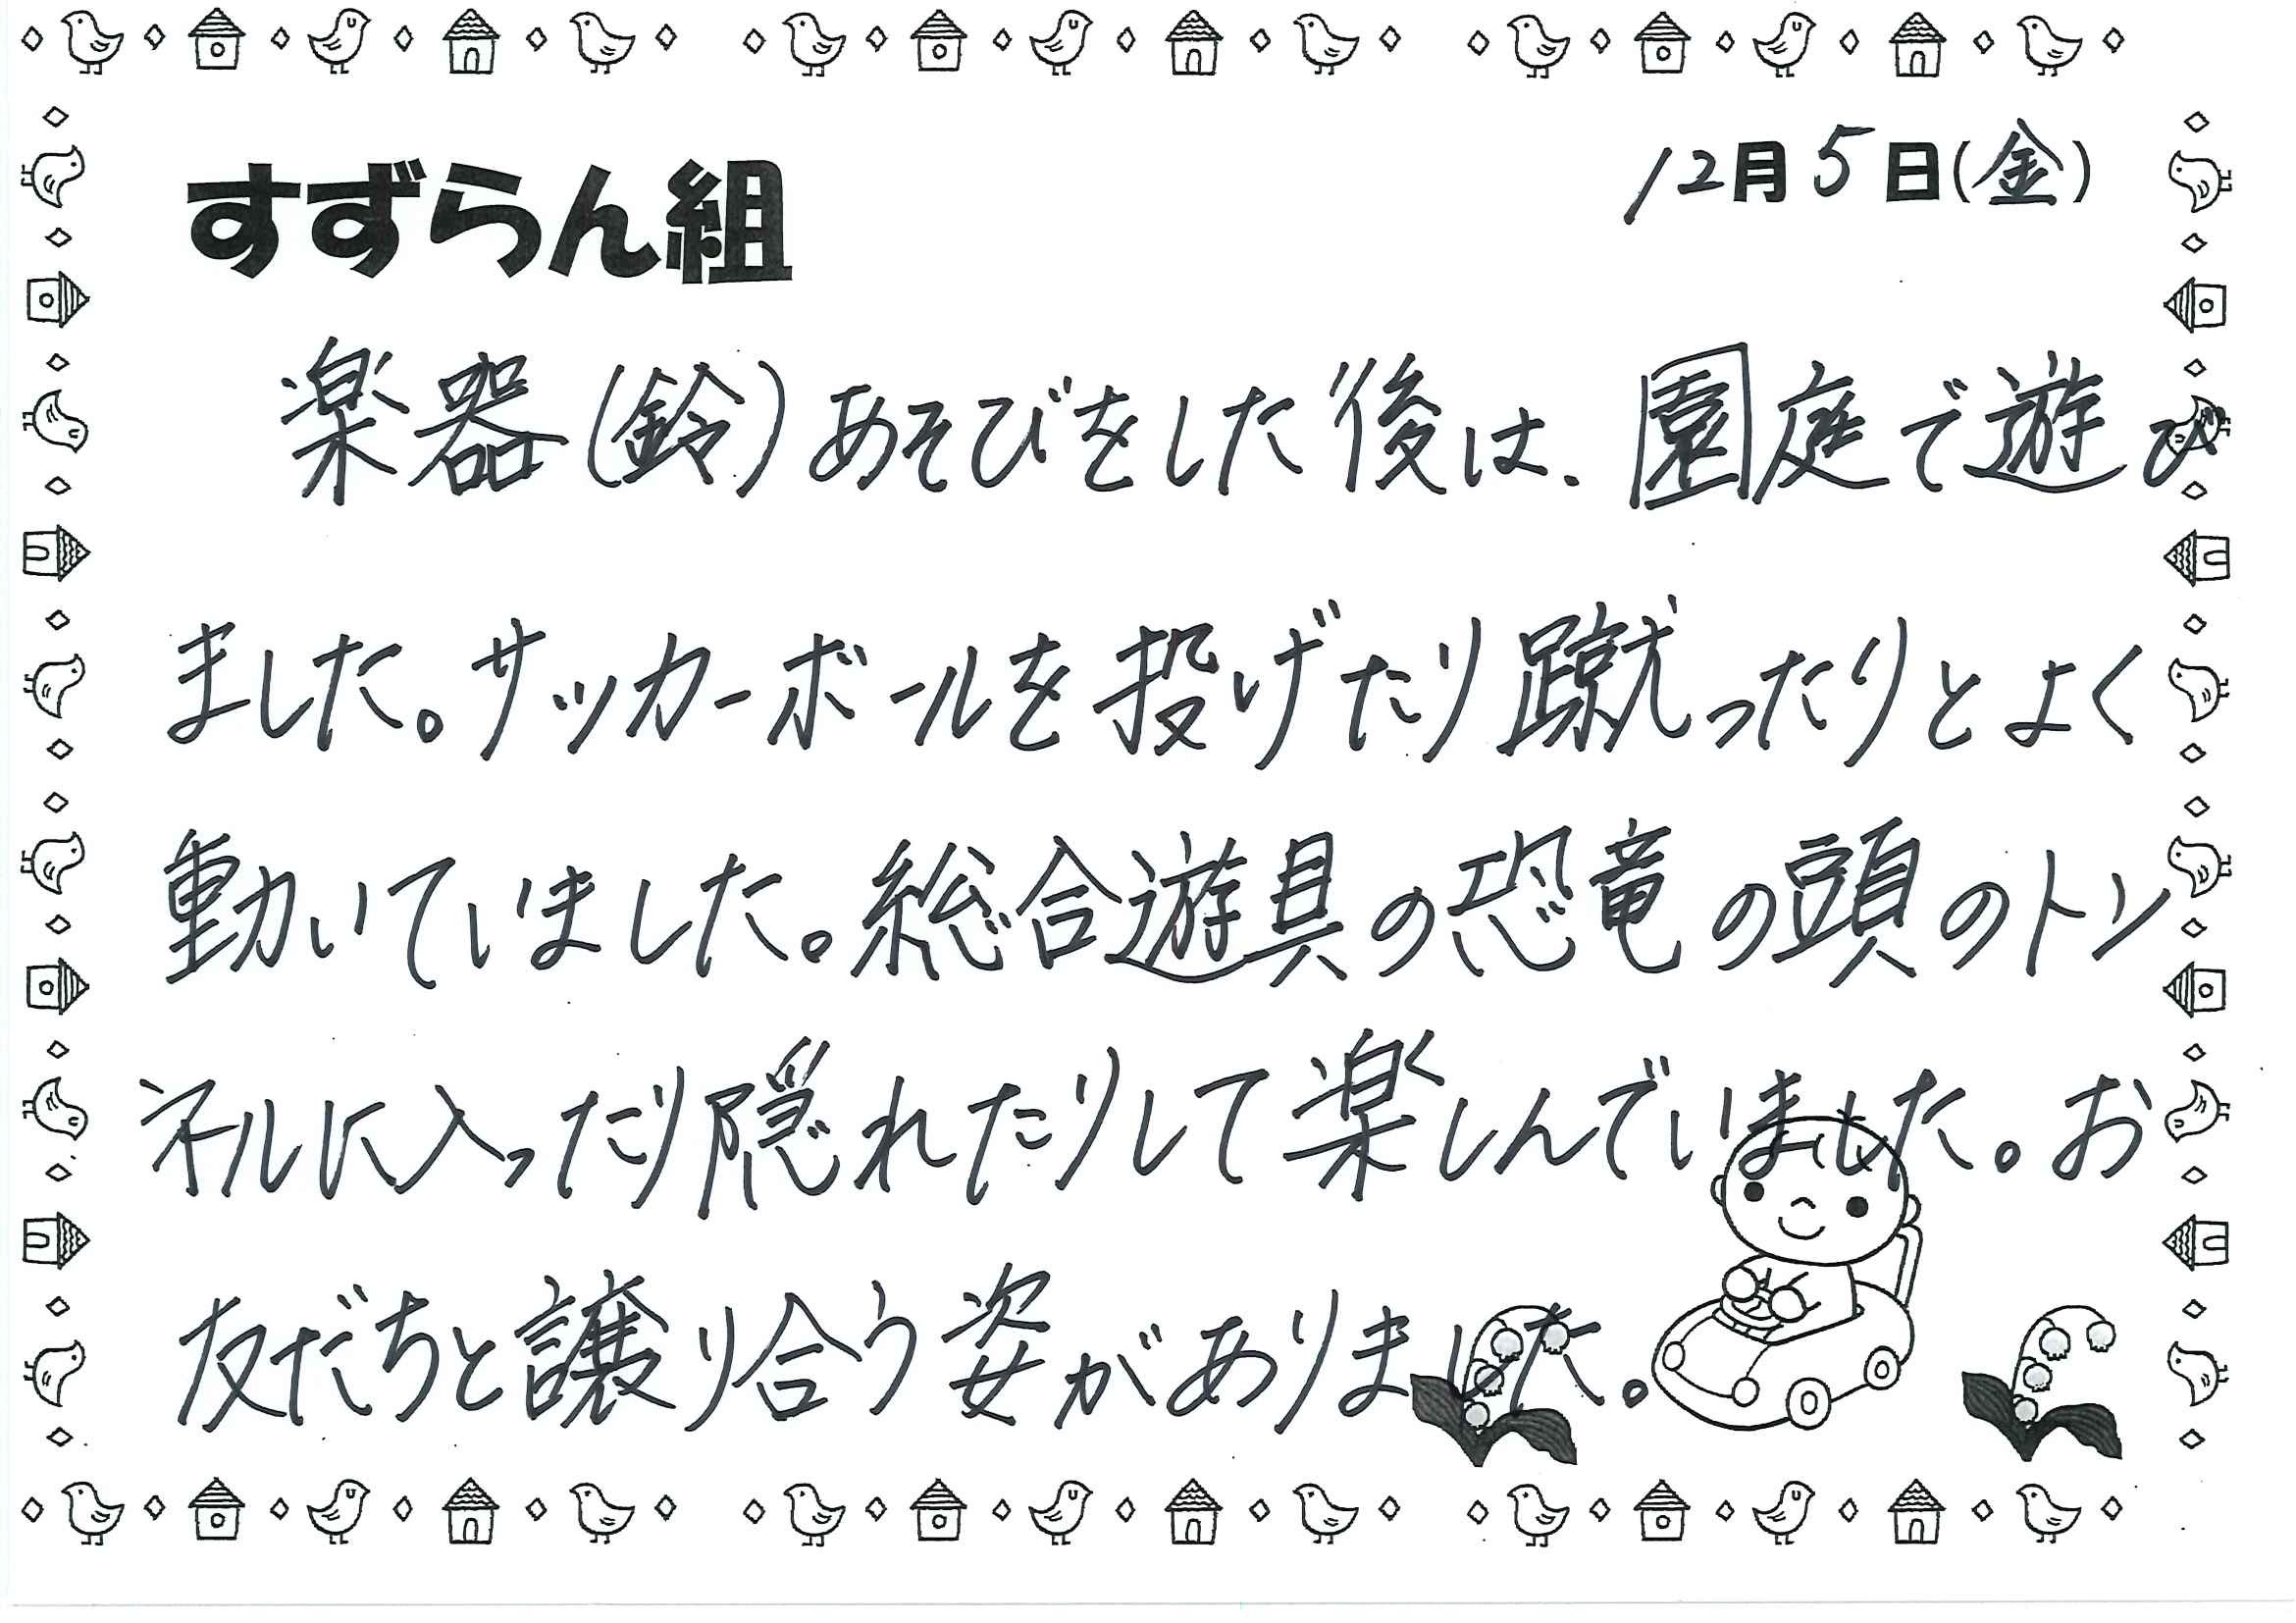 すずらん組
12月5日(金)
楽器(鈴)あそびをした後は、園庭で遊び
ました。サッカーボールを投げたり蹴ったりとよく
動いていました。総合遊具の恐竜の頭のトン
ネルに入ったり隠れたりして楽しんでいました。お
友だちと譲り合う姿がありました。